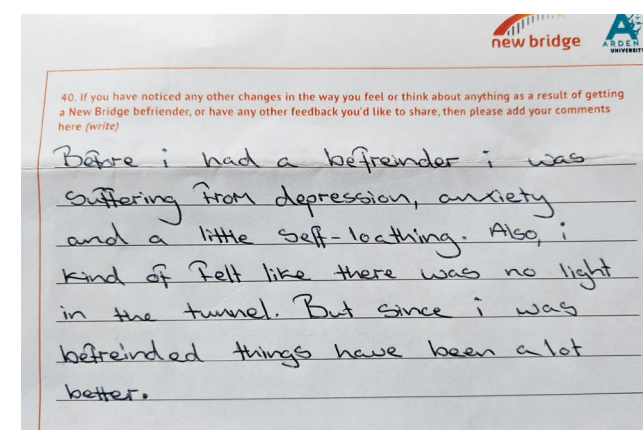 new bridge
ARDEN
UNIVERSITY
40. If you have noticed any other changes in the way you feel or think about anything as a result of getting
a New Bridge befriender, or have any other feedback you'd like to share, then please add your comments
here (write)
Before i had a befreinder i was
suffering from depression, anxiety
and a little self-loathing. Also, i
kind of felt like there was no light
in the tunnel. But since i was
befreinded things have been a lot
better.